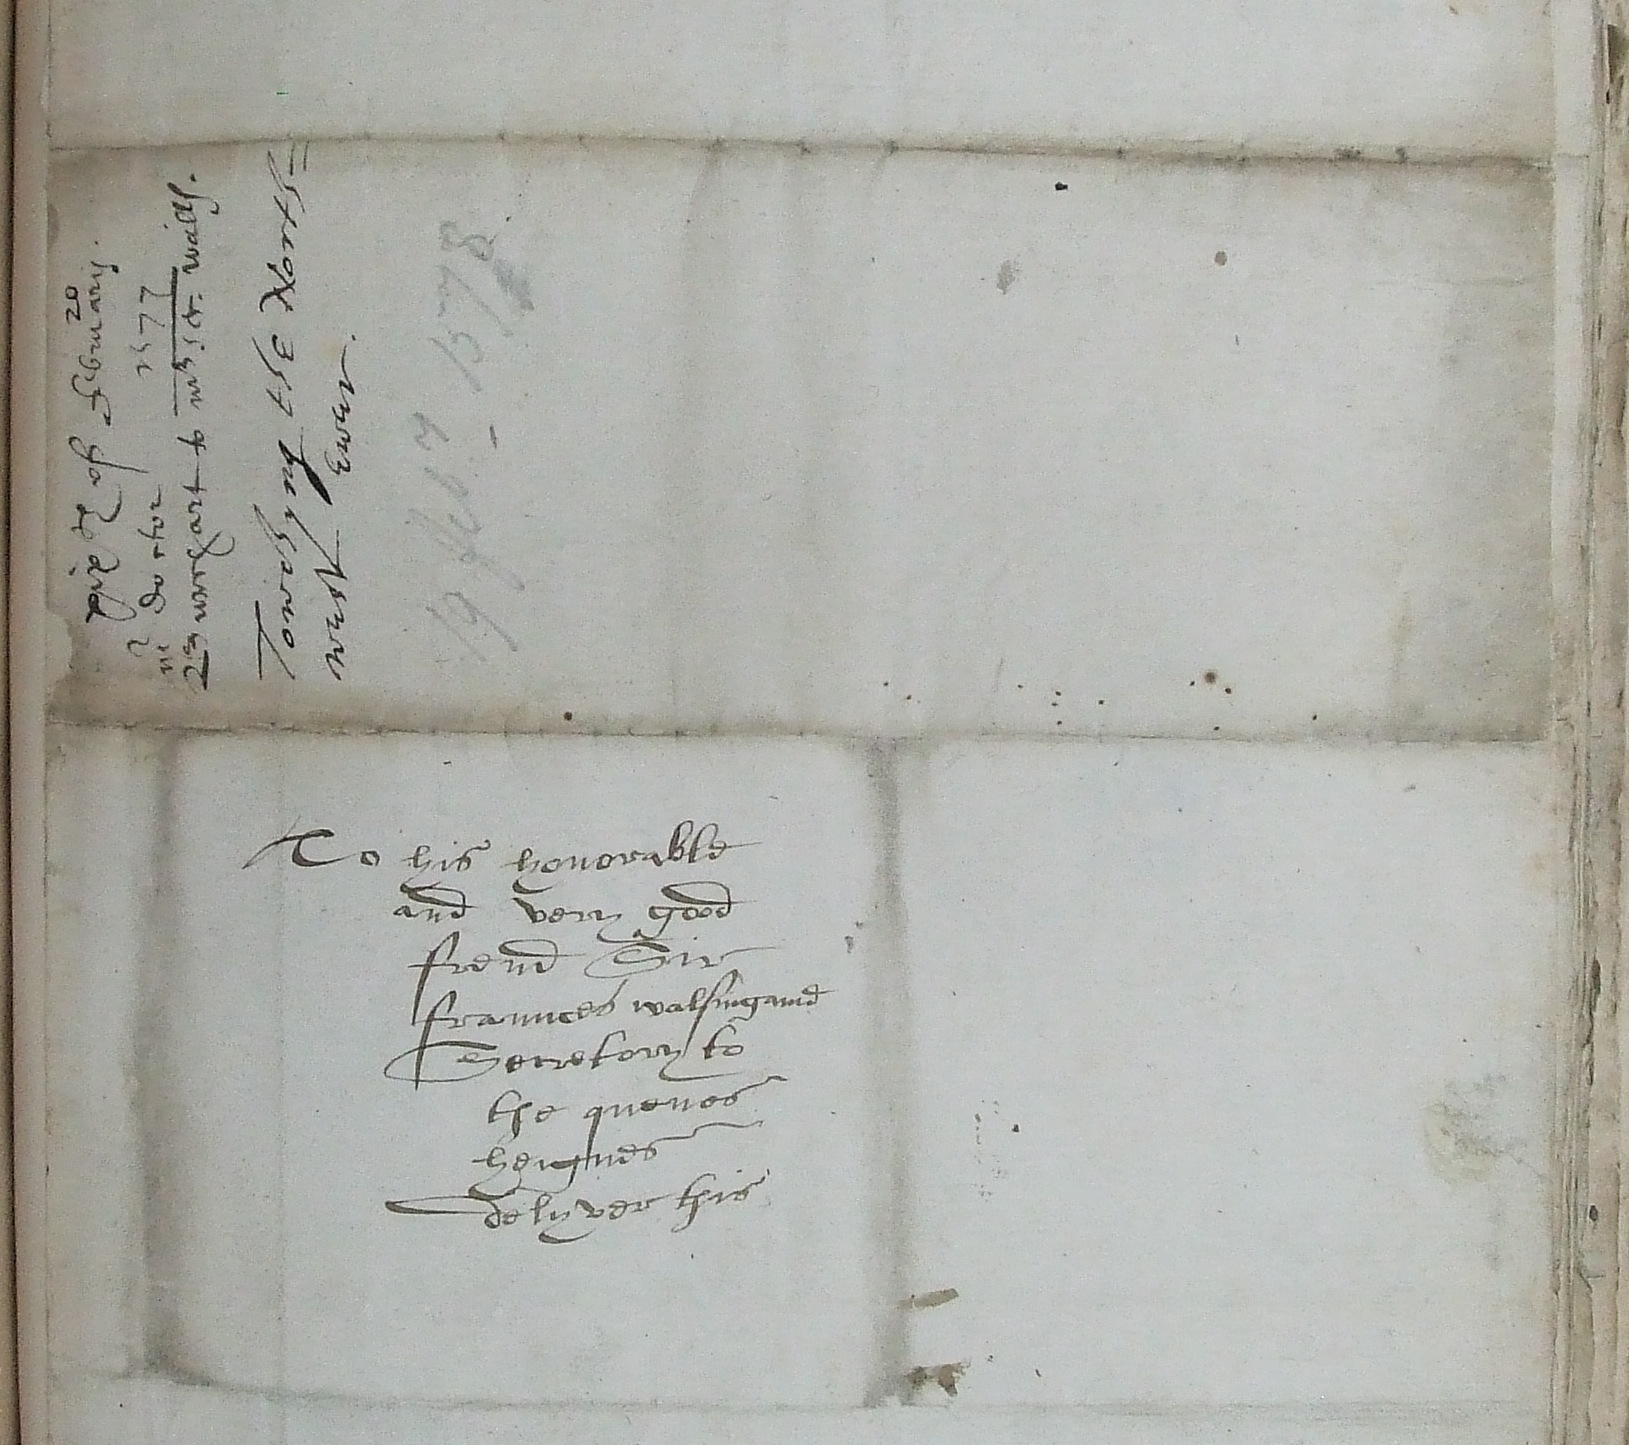 20
of Februarij.
1577
doctor
to mr secr. Wals.
Towching the North=
west
19 Feb 1578
To his honorable
and very good
frend Sir
Frannces walsingamd
Secretory to
the quenes
heignes
delyver this